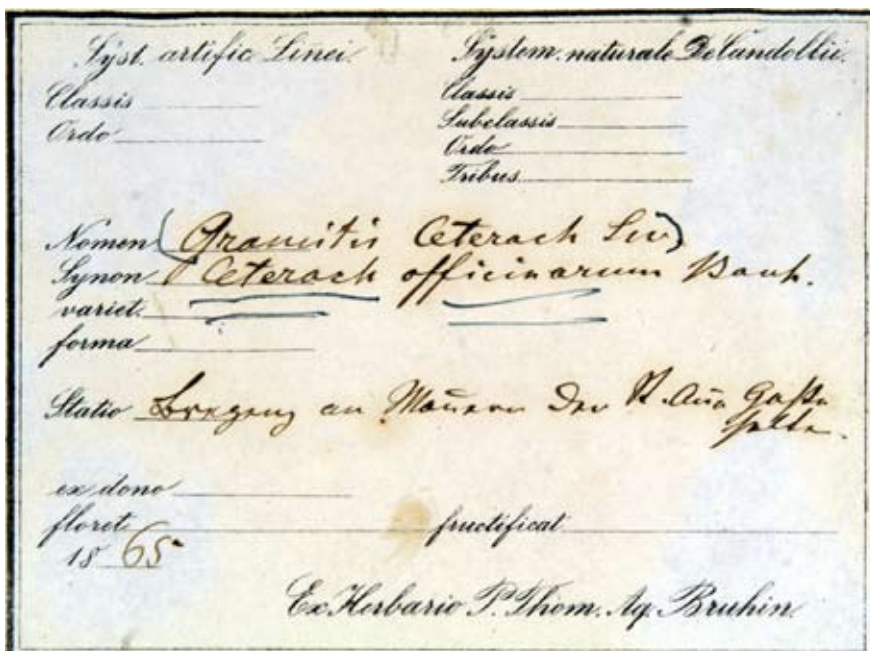 Syst. artific Linei. System. naturale DeCandollii.
Classis Classis
Ordo Subclassis
Ordo
Tribus
Nomen (Gramitis Ceterach Sw)
Synon Ceterach officinarum Bauh.
variet.
forma
Statio Bregenz an Mauern der St. Aña Gaße
ex dono
floret fructificat
18 65
Ex Herbario P. Thom. Aq. Bruhin.